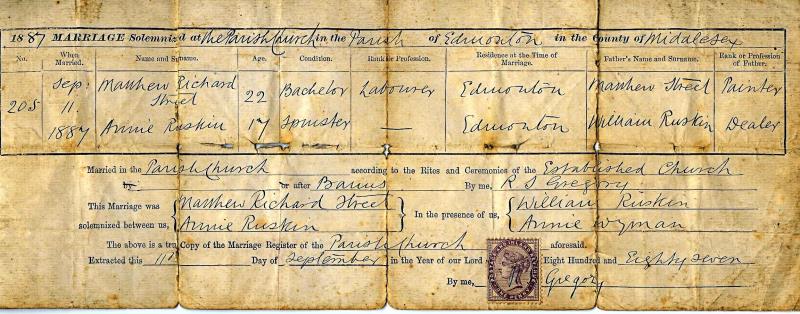 1887 MARRIAGE Solemnized at the Parish Church in the Parish of Edmonton in the County of Middlesex
No. When Married. Name and Surname. Age. Condition. Rank or Profession. Residence at the Time of Marriage. Father's Name and Surname. Rank or Profession of Father.
208 Sep: 11. 1887 Matthew Richard Street 22 Bachelor Labourer Edmonton Matthew Street Painter
Annie Ruskin 17 Spinster — Edmonton William Ruskin Dealer
Married in the Parish Church according to the Rites and Ceremonies of the Established Church
by or after Banns By me, R S Gregory
This Marriage was solemnized between us, { Matthew Richard Street Annie Ruskin } In the presence of us, { William Ruskin Annie Wyman
The above is a true Copy of the Marriage Register of the Parish Church aforesaid.
Extracted this 11th Day of September in the Year of our Lord Eight Hundred and Eighty seven
By me, Gregory
ONE PENNY